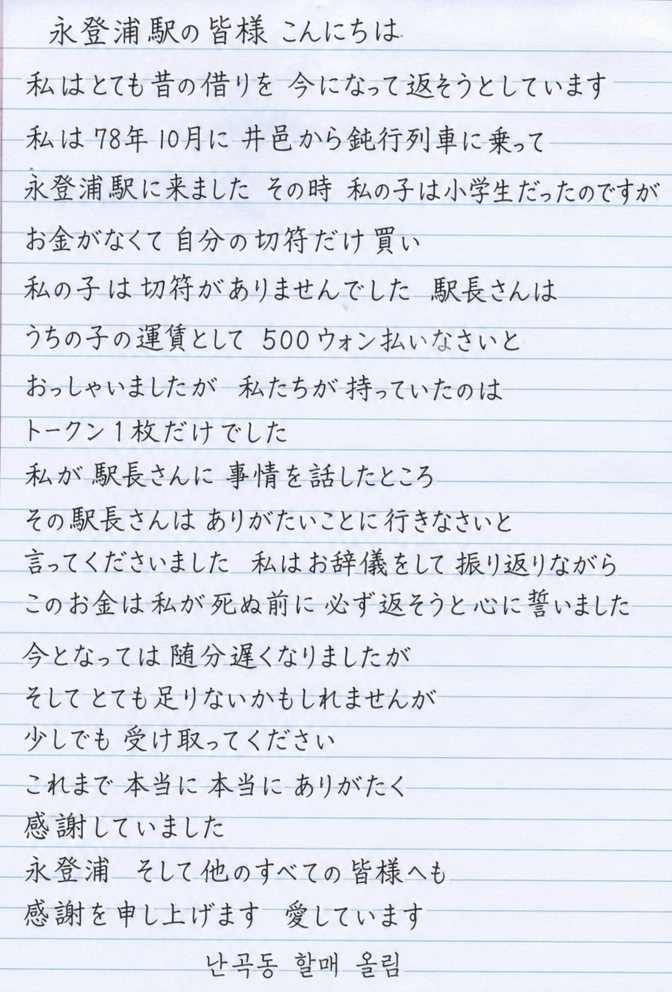 永登浦駅の皆様 こんにちは
私はとても昔の借りを 今になって返そうとしています
私は 78年 10月に 井邑から鈍行列車に乗って
永登浦駅に来ました その時 私の子は小学生だったのですが
お金がなくて 自分の切符だけ買い
私の子は切符がありませんでした 駅長さんは
うちの子の運賃として 500ウォン払いなさいと
おっしゃいましたが 私たちが持っていたのは
トークン1枚だけでした
私が駅長さんに 事情を話したところ
その駅長さんは ありがたいことに行きなさいと
言ってくださいました 私はお辞儀をして振り返りながら
このお金は私が死ぬ前に 必ず返そうと心に誓いました
今となっては 随分遅くなりましたが
そしてとても足りないかもしれませんが
少しでも 受け取ってください
これまで 本当に 本当に ありがたく
感謝していました
永登浦 そして他のすべての皆様へも
感謝を申し上げます 愛しています
난곡동 할매 올림